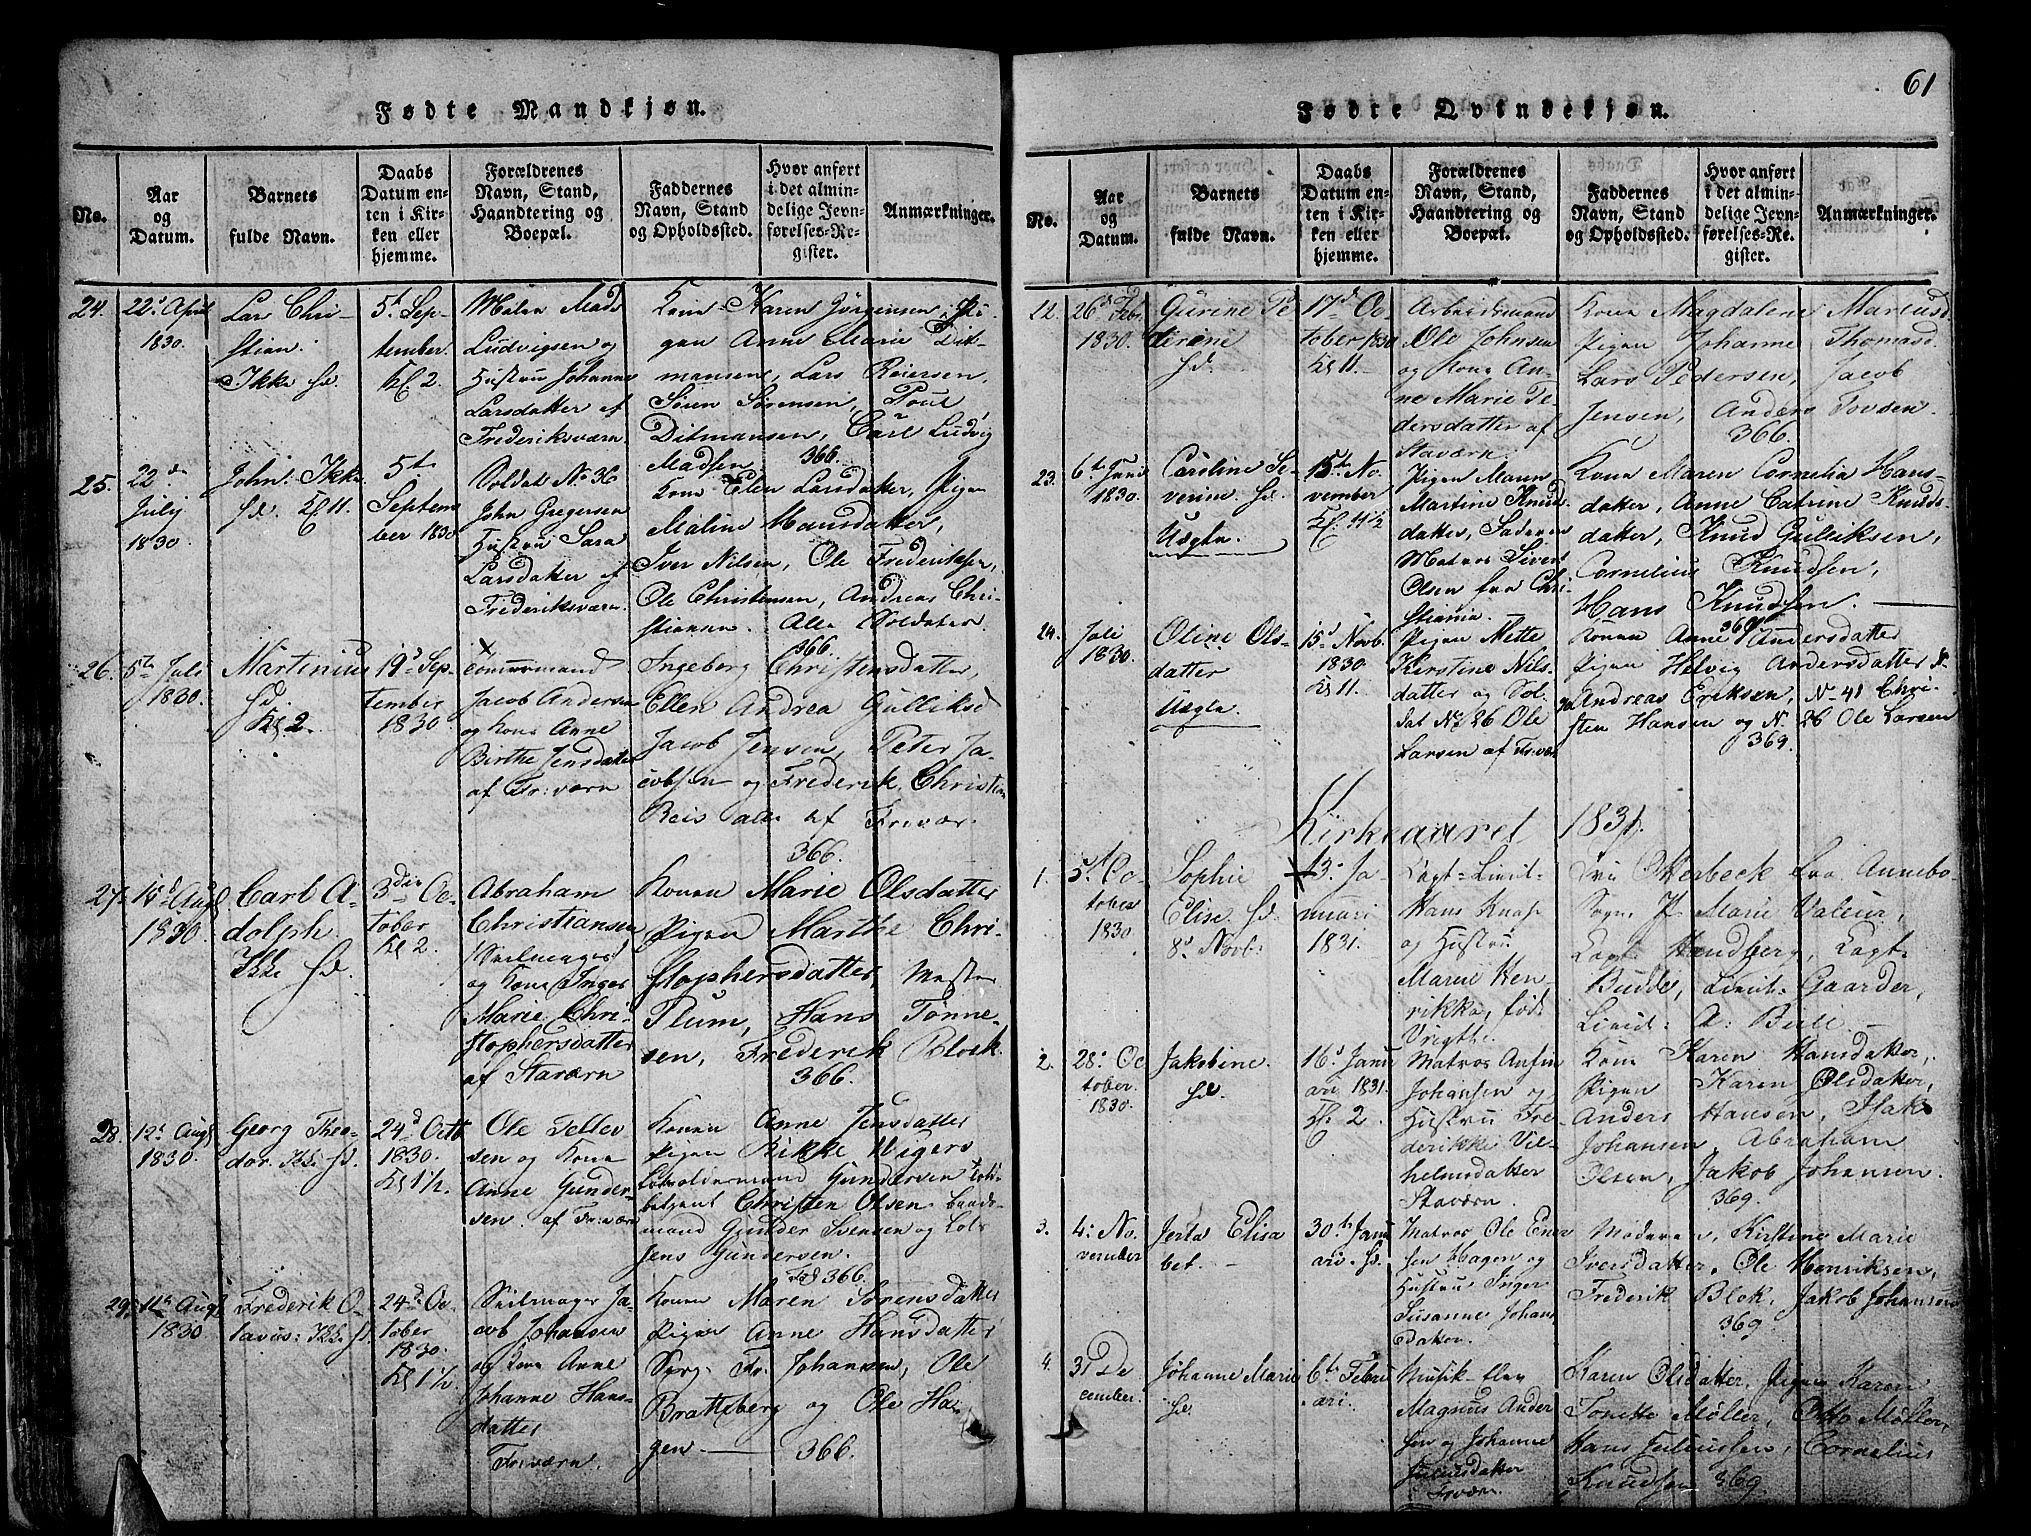 61
Fødte Mandkjøn.
No.
Aar
og
Datum.
Barnets
fulde Navn.
Daabs
Datum en-
ten i Kir-
ken eller
hjemme.
Forældrenes
Navn, Stand,
Haandtering og
Boepæl.
Faddernes
Navn, Stand
og Opholdssted.
Hvor anført
i det almin-
delige Jevn-
førelses-Re-
gister.
Anmærkninger.
24.
22d April
1830.
Lars Chri-
stian.
Ikke hd.
5t Sep-
tember.
Kl 2.
Mads
Ludvigsen og
Hustru Johanne
Larsdatter af
Frideriksværn
Kone Karen Jörgensen, Pi-
gen Anne Marie Dit-
mansens, Lars Reiersen,
Sören Sörensen, Poul
Ditmansen, Carl Ludvig
Madsen. 366.
25.
22de
July
1830
John. Ikke
hd. Kl 11.
5te
Septem
ber 1830
Soldat No 36
John Gregersen
Hustru Sara
Larsdatter af
Frideriksværn.
Kone Elen Larsdatter, Pigen
Maline Hansdatter,
Iver Nilsen, Ole Frederiksen,
Ole Christensen, Andreas Chri-
stiansen. Alle Soldater.
366.
26.
5te Juli
1830.
Martinius
hd.
Kl 2.
19d Sep-
tember
1830
Jacob Andersen
og Kone Anne
Birthe Jensdatter
af Fr:værn
Ingeborg Christensdatter,
Ellen Andrea Gulliksd
Jacob Jensen, Peter Ja-
cobsen og Frederik Christian
Reis alle af Fr:vær.
366.
27.
15d Aug
1830.
Carl A-
dolph.
Ikke hd.
3die Oc-
tober
Kl 2.
Abraham
Christiansen
Seilmager
og Kone Inger
Marie Chri-
stophersdatter
af Staværn
Konen Marie Olsdatter
Pigen Marthe Chri-
stophersdatter, Mester
Plum, Hans Tönne-
sen, Frederik Block.
366.
28.
12d Aug
1830.
Georg Theo-
dor. Ikke hd.
24d Octb
1830.
Kl 1 1/2.
Ole Tellev-
sen og Kone
Anne Gunder-
sen. af Fr:værn
Konen Anne Jensdatter
Pigen Rikke Wigers
Gundersen Lods-
betjent Christen Olsen, baads-
mand Gunder Svensen og Lods
Jens Gundersen.
366.
29.
11te Aug
1830
Frederik O-
tavus: Ikke hd.
24d Oc-
tober
1830.
Kl 1 1/2.
Seilmager Ja-
cob Johansen
og Kone Anne
Johanne Hans-
datter
Fr:værn.
Konen Maren Sörensdatter
Pigen Anne Hansdatter
Serg. Fr. Johansen, Ole
Brattsberg og Ole Ha-
gen 366.
Fødte Qvindekjøn.
No.
Aar
og
Datum.
Barnets
fulde Navn.
Daabs
Datum en-
ten i Kir-
ken eller
hjemme.
Forældrenes
Navn, Stand,
Haandtering og
Boepæl.
Faddernes
Navn, Stand
og Opholdssted.
Hvor anført
i det almin-
delige Jevn-
førelses-Re-
gister.
Anmærkninger.
22.
26d Feb
1830.
Gurine Pe
terine
hd.
17d Oc-
tober 1830
Kl 11.
Arbeidsmand
Ole Johnsen
og Kone An-
ne Marie Pe-
dersdatter af
Staværn.
Kone Magdalene Mariusd
Pigen Johanne Thomasd.
Lars Pedersen, Jacob
Jensen, Anders Tovsen.
366.
23.
6te Juni
1830.
Caroline Se-
verine hd.
Uægte.
15te No-
vember
Kl. 11 1/2
Pigen Maren
Martine Knud
datter, Faderen
Matros Sivert
Olsen fra Chri-
stiania.
Kone Maren Cornelia Hans-
datter, Anne Catrine Knuds-
datter, Knud Gulliksen,
Cornelius Knudsen,
Hans Knudsen.
24.
Juli
1830.
Oline Ols-
datter
Uægte.
15d Novb.
1830
Kl 11.
Pigen Mette
Kirstine Nils-
datter og Sol-
dat No 26 Ole
Larsen af Fr:værn
Konen Anne Andersdatter
Pigen Helvig Andersdatter
Andreas Eriksen, No 41 Chri-
sten Hansen og N. 26 Ole Larsen
369.
Kirkeaaret 1831.
1.
5t Oc-
tober
1830
Sophie
Elise hd.
8d Novb.
13d Ja
nuari
1831.
Capt: Lieut-
Hans Knap
og Hustru
Maren Hen-
rikka, föd
Vrigth.
Fru Otterbeck fra Annebo-
Sogn, J. Marie Valeur,
Capt. Handberg, Capt.
Budde, Lieut: Gaarder,
Lieut: A: Bull.
2.
28d Oc
tober.
1830.
Jakobine.
hd.
16d Janu
ari 1831.
Kl. 2
Matros Anfin
Johansen og
Hustru Fre-
derikke Vil-
helmsdatter
Staværn
Kone Karen Hansdatter,
Pigen Karen Olsdatter,
Anders Hansen, Isak
Johansen, Abraham
Olsen, Jakob Johansen.
369.
3.
4d No-
vember
Jerta Elisa
bet.
30te Janu
ari. hd.
Matros Ole Ener
sen Hagen og
Hustru Inger
Susanne Johans
datter.
Moderen, Kirstine Marie
Iversdatter, Ole Henriksen,
Frederik Blok, Jakob Johansen
369.
4.
31 De
cember.
Johanne Marie
hd.
6te Febru
ari.
Musik-elev
Magnus Ander
sen og Johanne
Juliusdatter
Fr:værn.
Karen Olsdatter, Pigen Karen
Tonette Møller, Otto Møller,
Hans Juliussen, Cornelius
Knudsen 369.